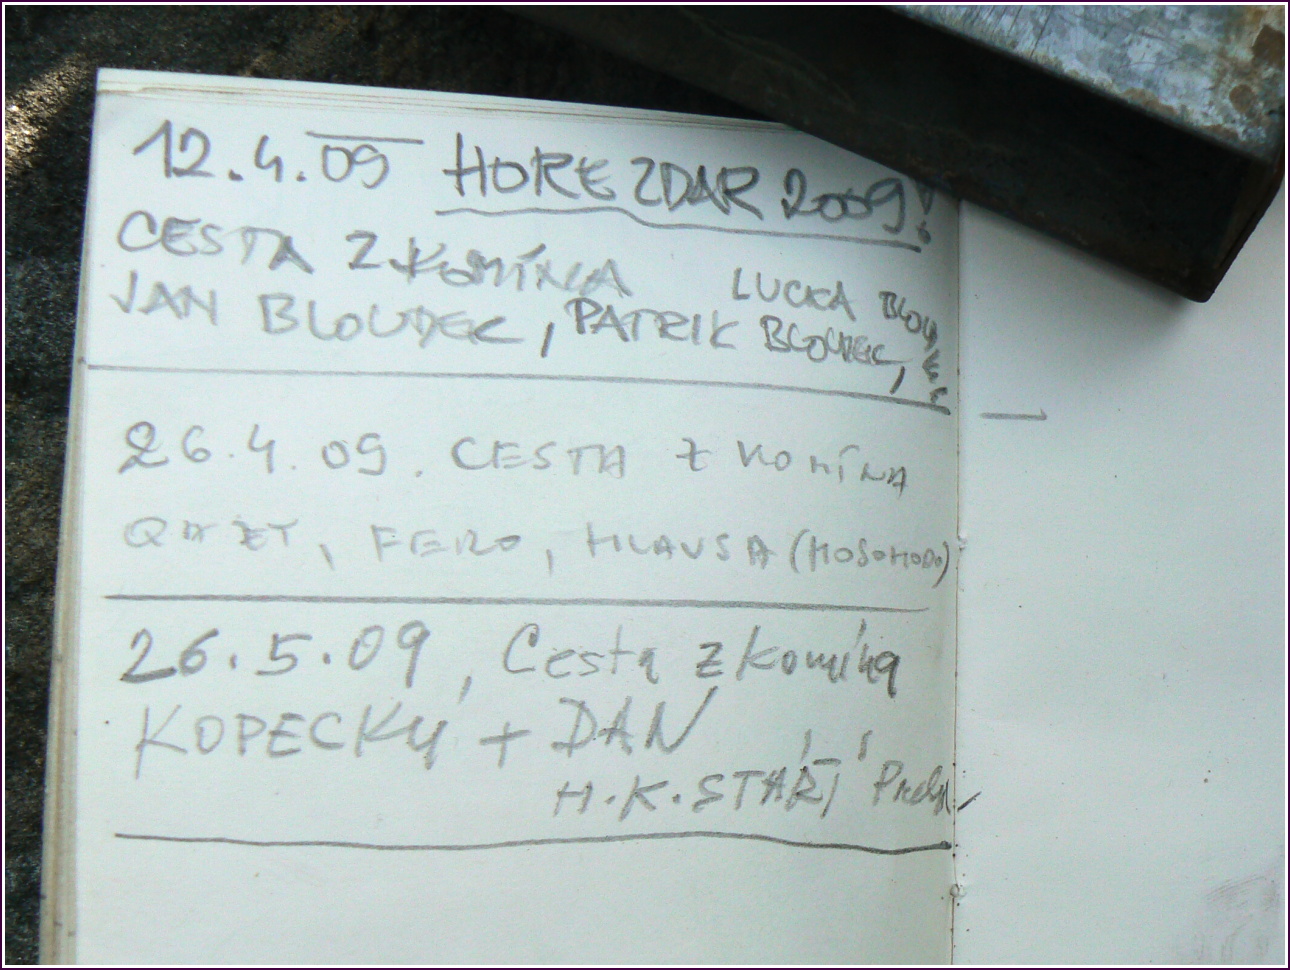 12.4.09 HORE ZDAR 2009!
CESTA Z KOMÍNA LUCKA
JAN BLOUDEK, PATRIK BLOUDEK,
26.4.09. CESTA Z KOMÍNA
FERO, HLAVSA (HOSOHODO)
26.5.09, Cesta z komína
KOPECKÝ + DAN
H.K. STÁŘÍ